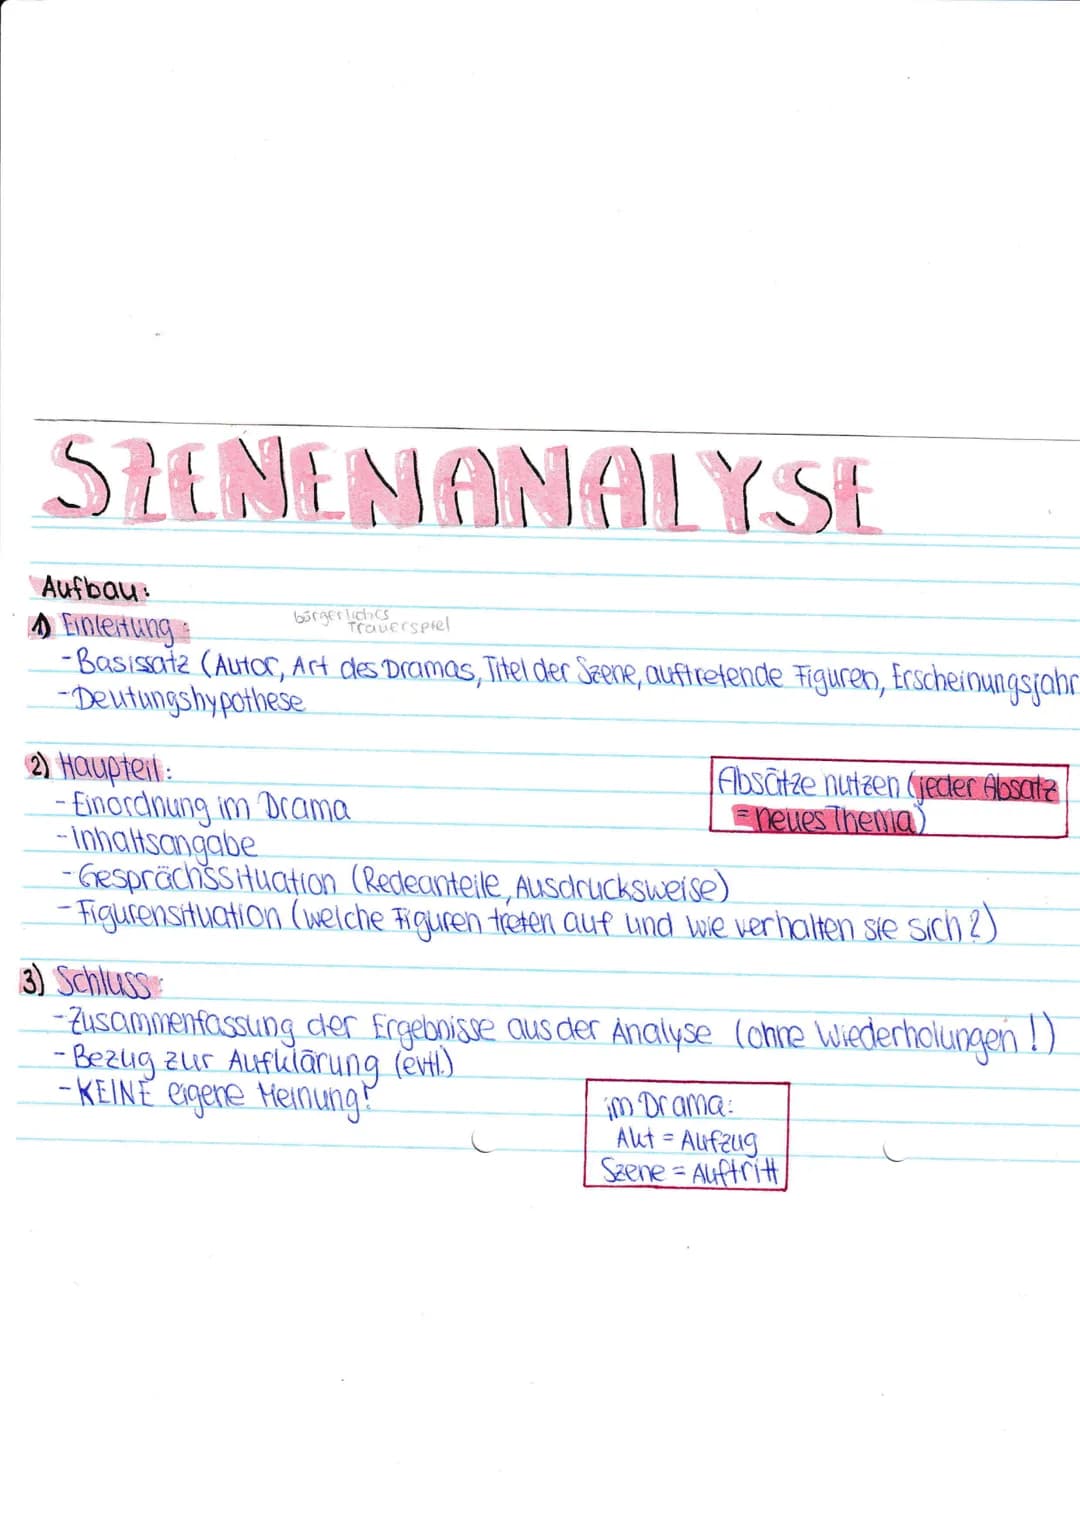 SZENENANALYSE
Aufbau:
1) Einleitung:
bürgerliches
Trauerspiel
-Basissatz (Autor, Art des Dramas, Titel der Szene, auftretende Figuren, Erscheinungsjahr
-Deutungshypothese
2) Haupteil:
-Einordnung im Drama
-Inhaltsangabe
-Gesprächssituation (Redeanteile, Ausdrucksweise)
-Figurensituation (welche Figuren treten auf und wie verhalten sie sich?)
Absätze nutzen (jeder Absatz
= neues Thema)
3) Schluss:
-Zusammenfassung der Ergebnisse aus der Analyse (ohne Wiederholungen!)
-Bezug zur Aufklärung (evtl.)
-KEINE eigene Meinung!
im Drama:
Akt = Aufzug
Szene = Auftritt